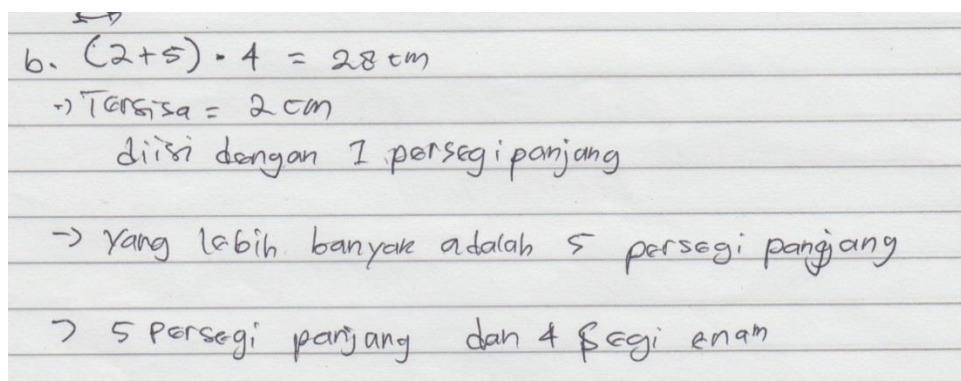 b. (2+5) · 4 = 28 cm
→) Tersisa = 2 cm
diisi dengan 1 persegi panjang
→ Yang lebih banyak adalah 5 persegi pangjang
→ 5 Persegi panjang dan 4 segi enam